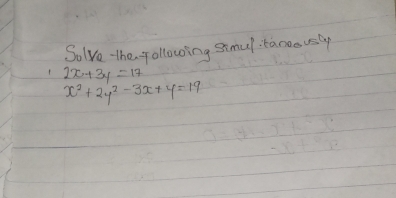 Solve the following simultaneously
2x+3y=17
x²+2y²-3x+y=19